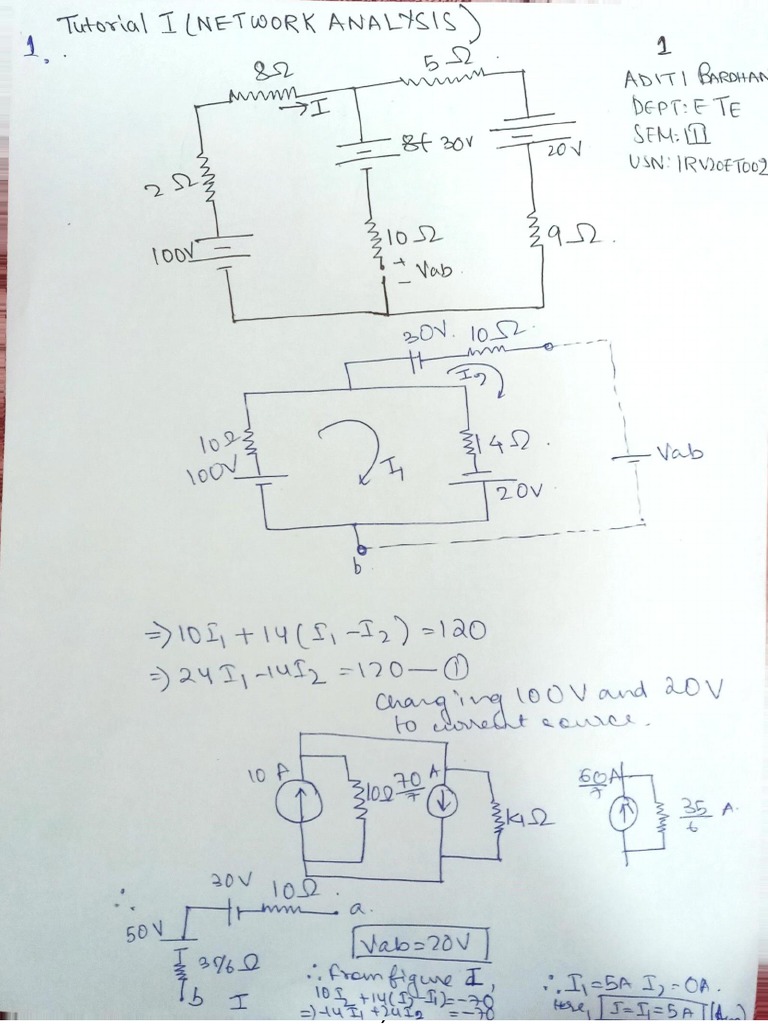 Tutorial I (NETWORK ANALYSIS)
1.
1
ADITI BARDHAN
DEPT: ETE
SEM: III
USN: 1RV20ET002
8Ω
5Ω
→ I
30V
20V
2Ω
10Ω
9Ω.
100V
+
- Vab.
30V. 10Ω.
I2
10Ω
100V
I1
14Ω.
20V
Vab
b
⇒ 10I1 + 14(I1 - I2) = 120
⇒ 24I1 - 14I2 = 120 — ①
Changing 100V and 20V
to current source.
10 A
10Ω
A
60/7 A
35/6
∴
30V 10Ω.
a.
50V
Vab = 20V
b I
∴ From figure I,
∴ I1 = 5A I2 = 0A.
Here, I = I1 = 5A